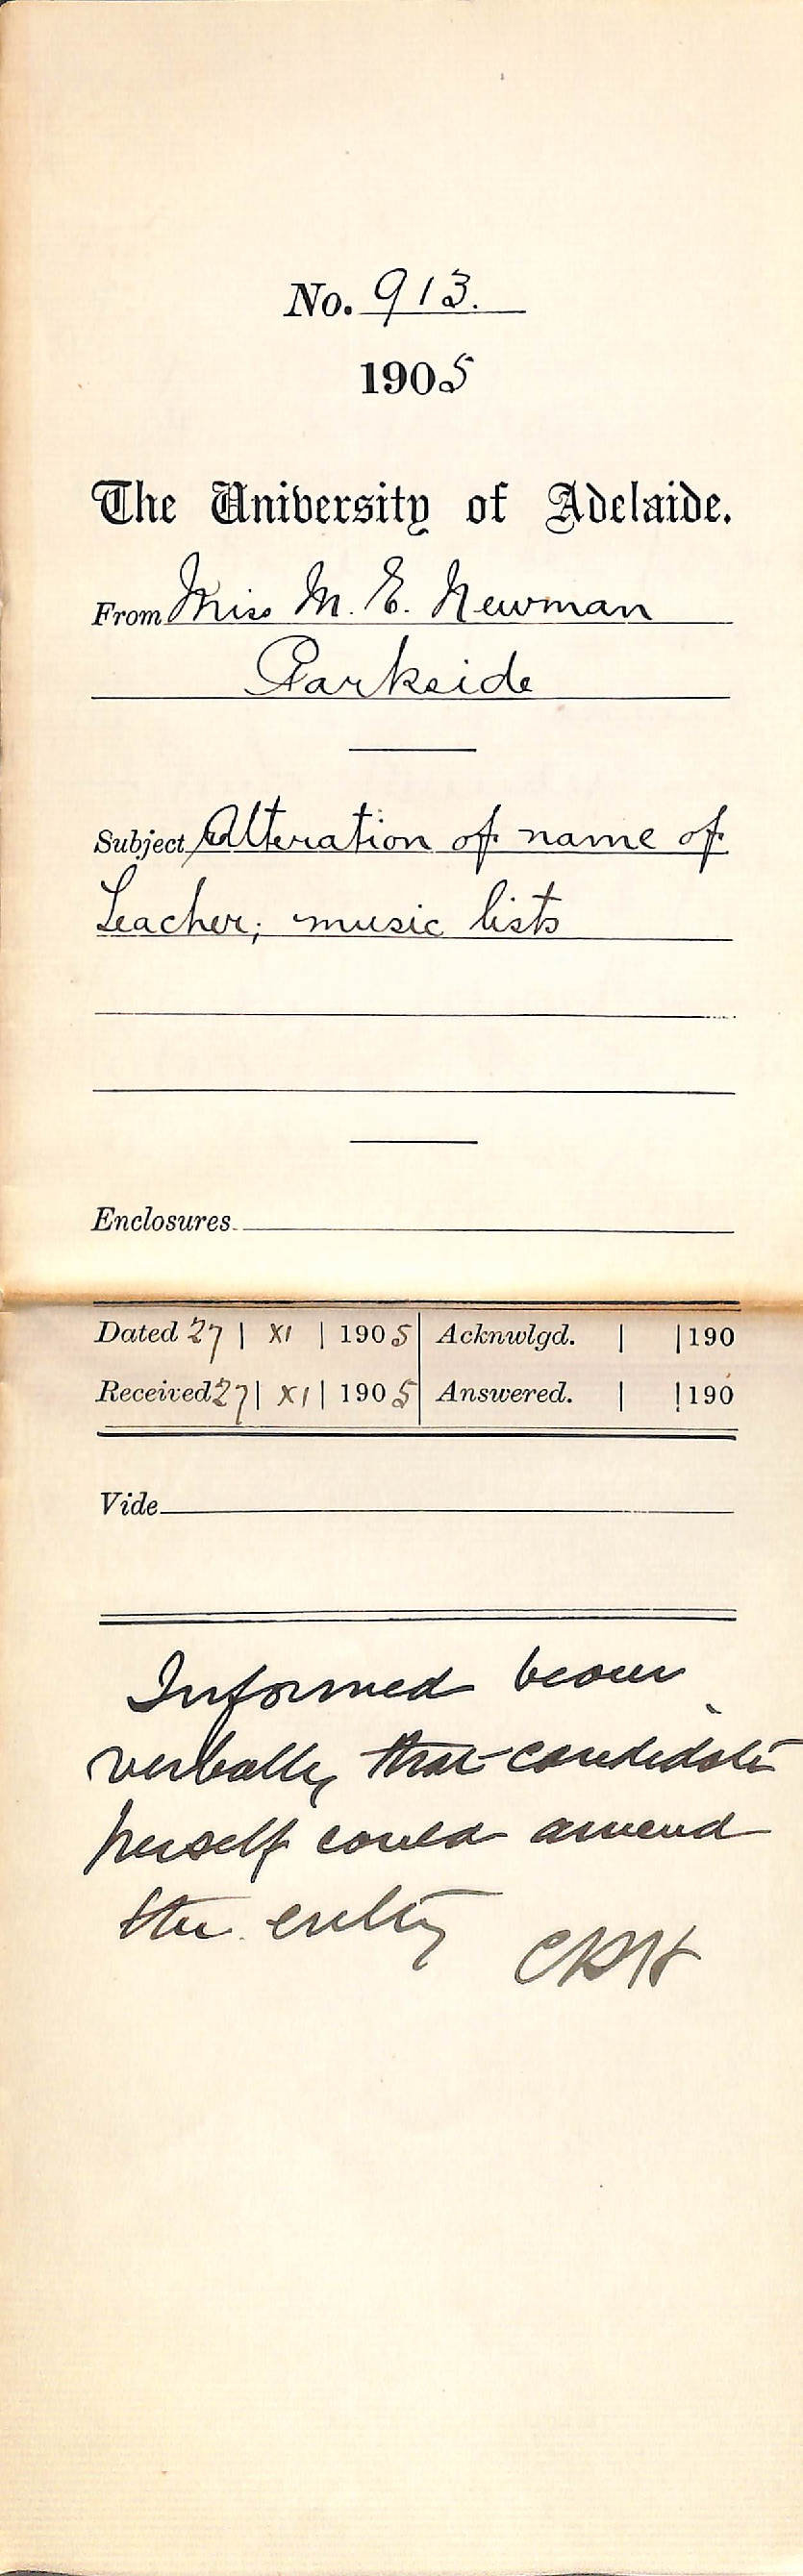 No. 913.
1905
The University of Adelaide.
From Miss M. E. Newman
Parkside
Subject Alteration of name of
Teacher; music lists
Enclosures
Dated 27 | XI | 1905 Acknwlgd. | | 190
Received 27 | XI | 1905 Answered. | | 190
Vide
Informed
verbally that candidate
herself could amend
the entry CRH